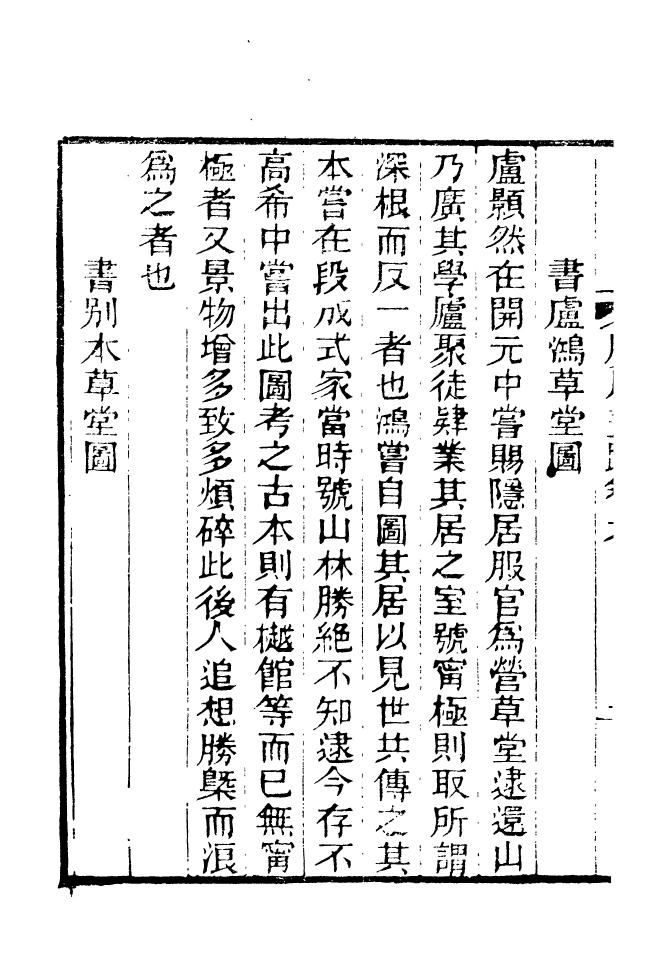 書盧鴻草堂圖
盧顥然在開元中嘗賜隱居服官爲營草堂逮還山
乃廣其學廬聚徒肄業其居之室號甯極則取所謂
深根而反一者也鴻嘗自圖其居以見世共傳之其
本嘗在段成式家當時號山林勝絕不知逮今存不
高希中嘗出此圖考之古本則有樾館等而已無甯
極者又景物增多致多煩碎此後人追想勝槩而浪
爲之者也
書別本草堂圖